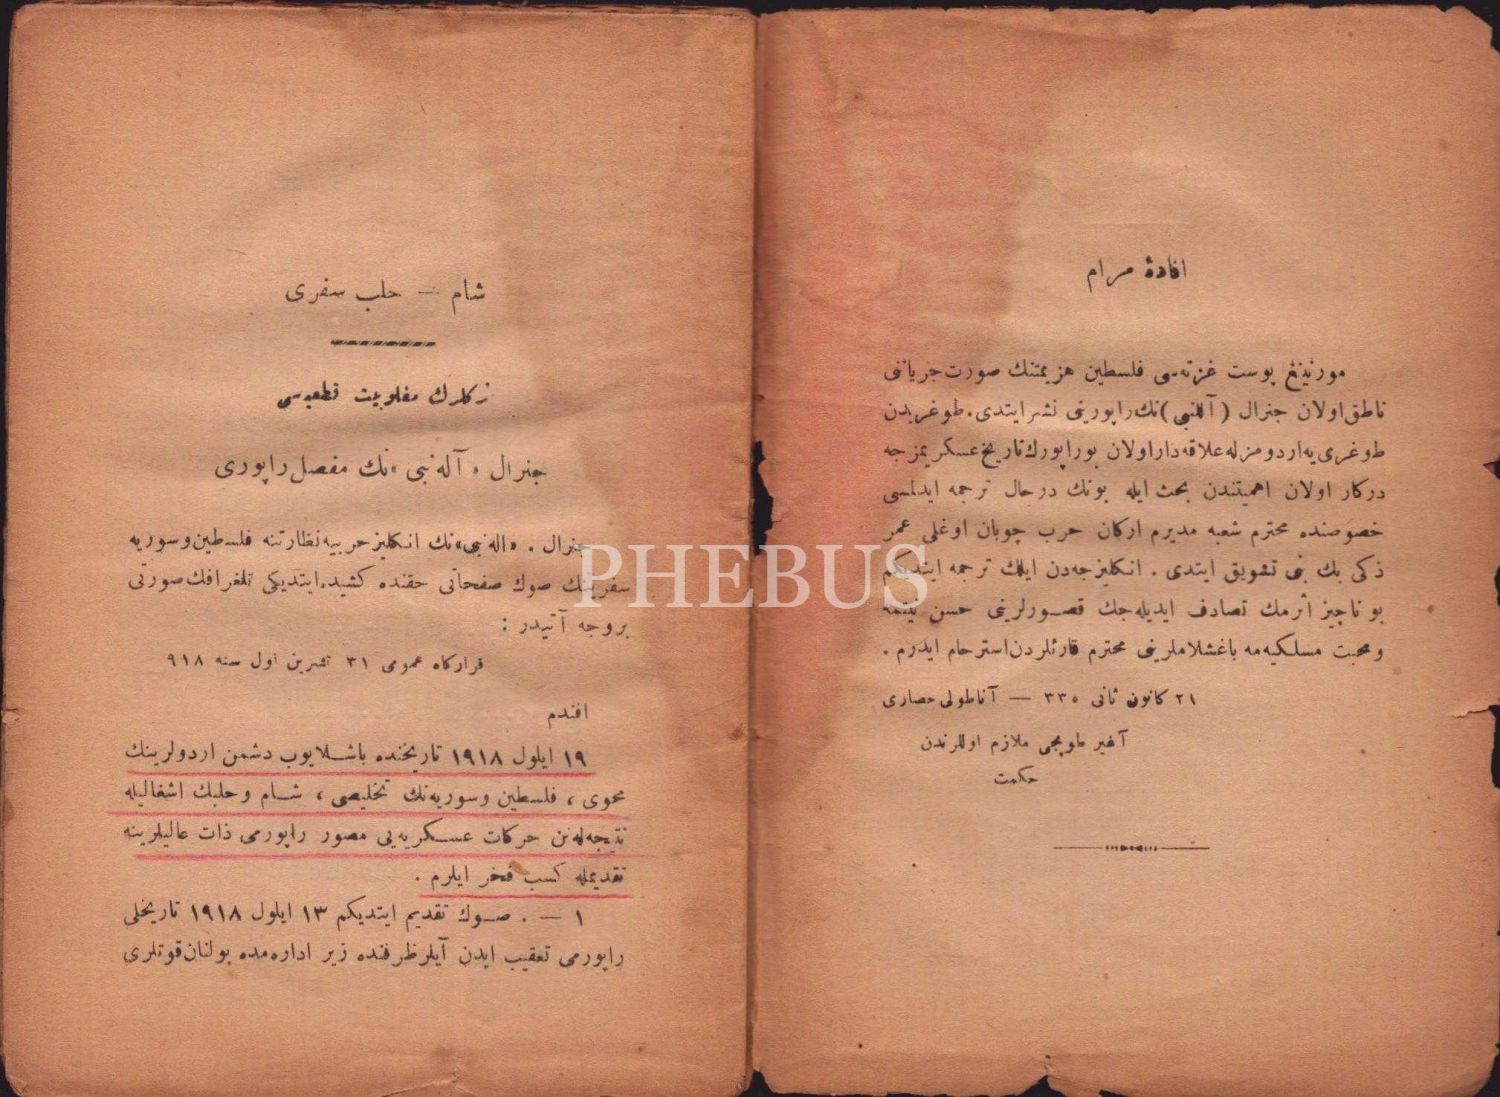 افادهٔ مرام
مورنینغ پوست غزته‌سی فلسطین هزیمتنك صورت جریاننی
ناطق اولان جنرال (آللنبی) نك راپورینی نشر ایتدی. طوغریدن
طوغری‌یه اردومزله علاقه‌دار اولان بو راپورك تاریخ عسكریمزجه
دركار اولان اهمیتندن بحث ایله بونك درحال ترجمه ایدلمسی
خصوصنده محترم شعبه مدیرم اركان حرب چوبان اوغلی عمر
ذكی بك بنی تشویق ایتدی. انكلیزجه‌دن ایلك ترجمه ایتدیكم
بو ناچیز اثرمك تصادف ایدیله‌جك قصورلرینی حسن نیتمه
و محبت مسلكیه‌مه باغشلاملرینی محترم قارئلردن استرحام ایدرم.
٢١ كانون ثانی ٣٣٥ — آناطولی حصاری
آغیر طوپجی ملازم اوللرندن
حكمت
شام — حلب سفری
تركلرك مغلوبیت قطعیه‌سی
جنرال «آله‌نبی» نك مفصل راپوری
جنرال. «اله‌نبی» نك انكلیز حربیه نظارتنه فلسطین و سوریه
سفرینك صوك صفحاتی حقنده كشیده ایتدیكی تلغرافك صورتی
بروجه آتیدر:
قرارگاه عمومی ٣١ تشرین اول سنه ٩١٨
افندم
١٩ ایلول ١٩١٨ تاریخنده باشلایوب دشمن اردولرینك
محوی، فلسطین و سوریه‌نك تخلیصی، شام و حلبك اشغالیله
نتیجه‌له‌نن حركات عسكریه‌یی مصور راپورمی ذات عالیلرینه
تقدیمله كسب فخر ایلرم.
١ — . صوك تقدیم ایتدیكم ١٣ ایلول ١٩١٨ تاریخلی
راپورمی تعقیب ایدن آیلر ظرفنده زیر اداره‌مده بولنان قوتلری
PHEBUS